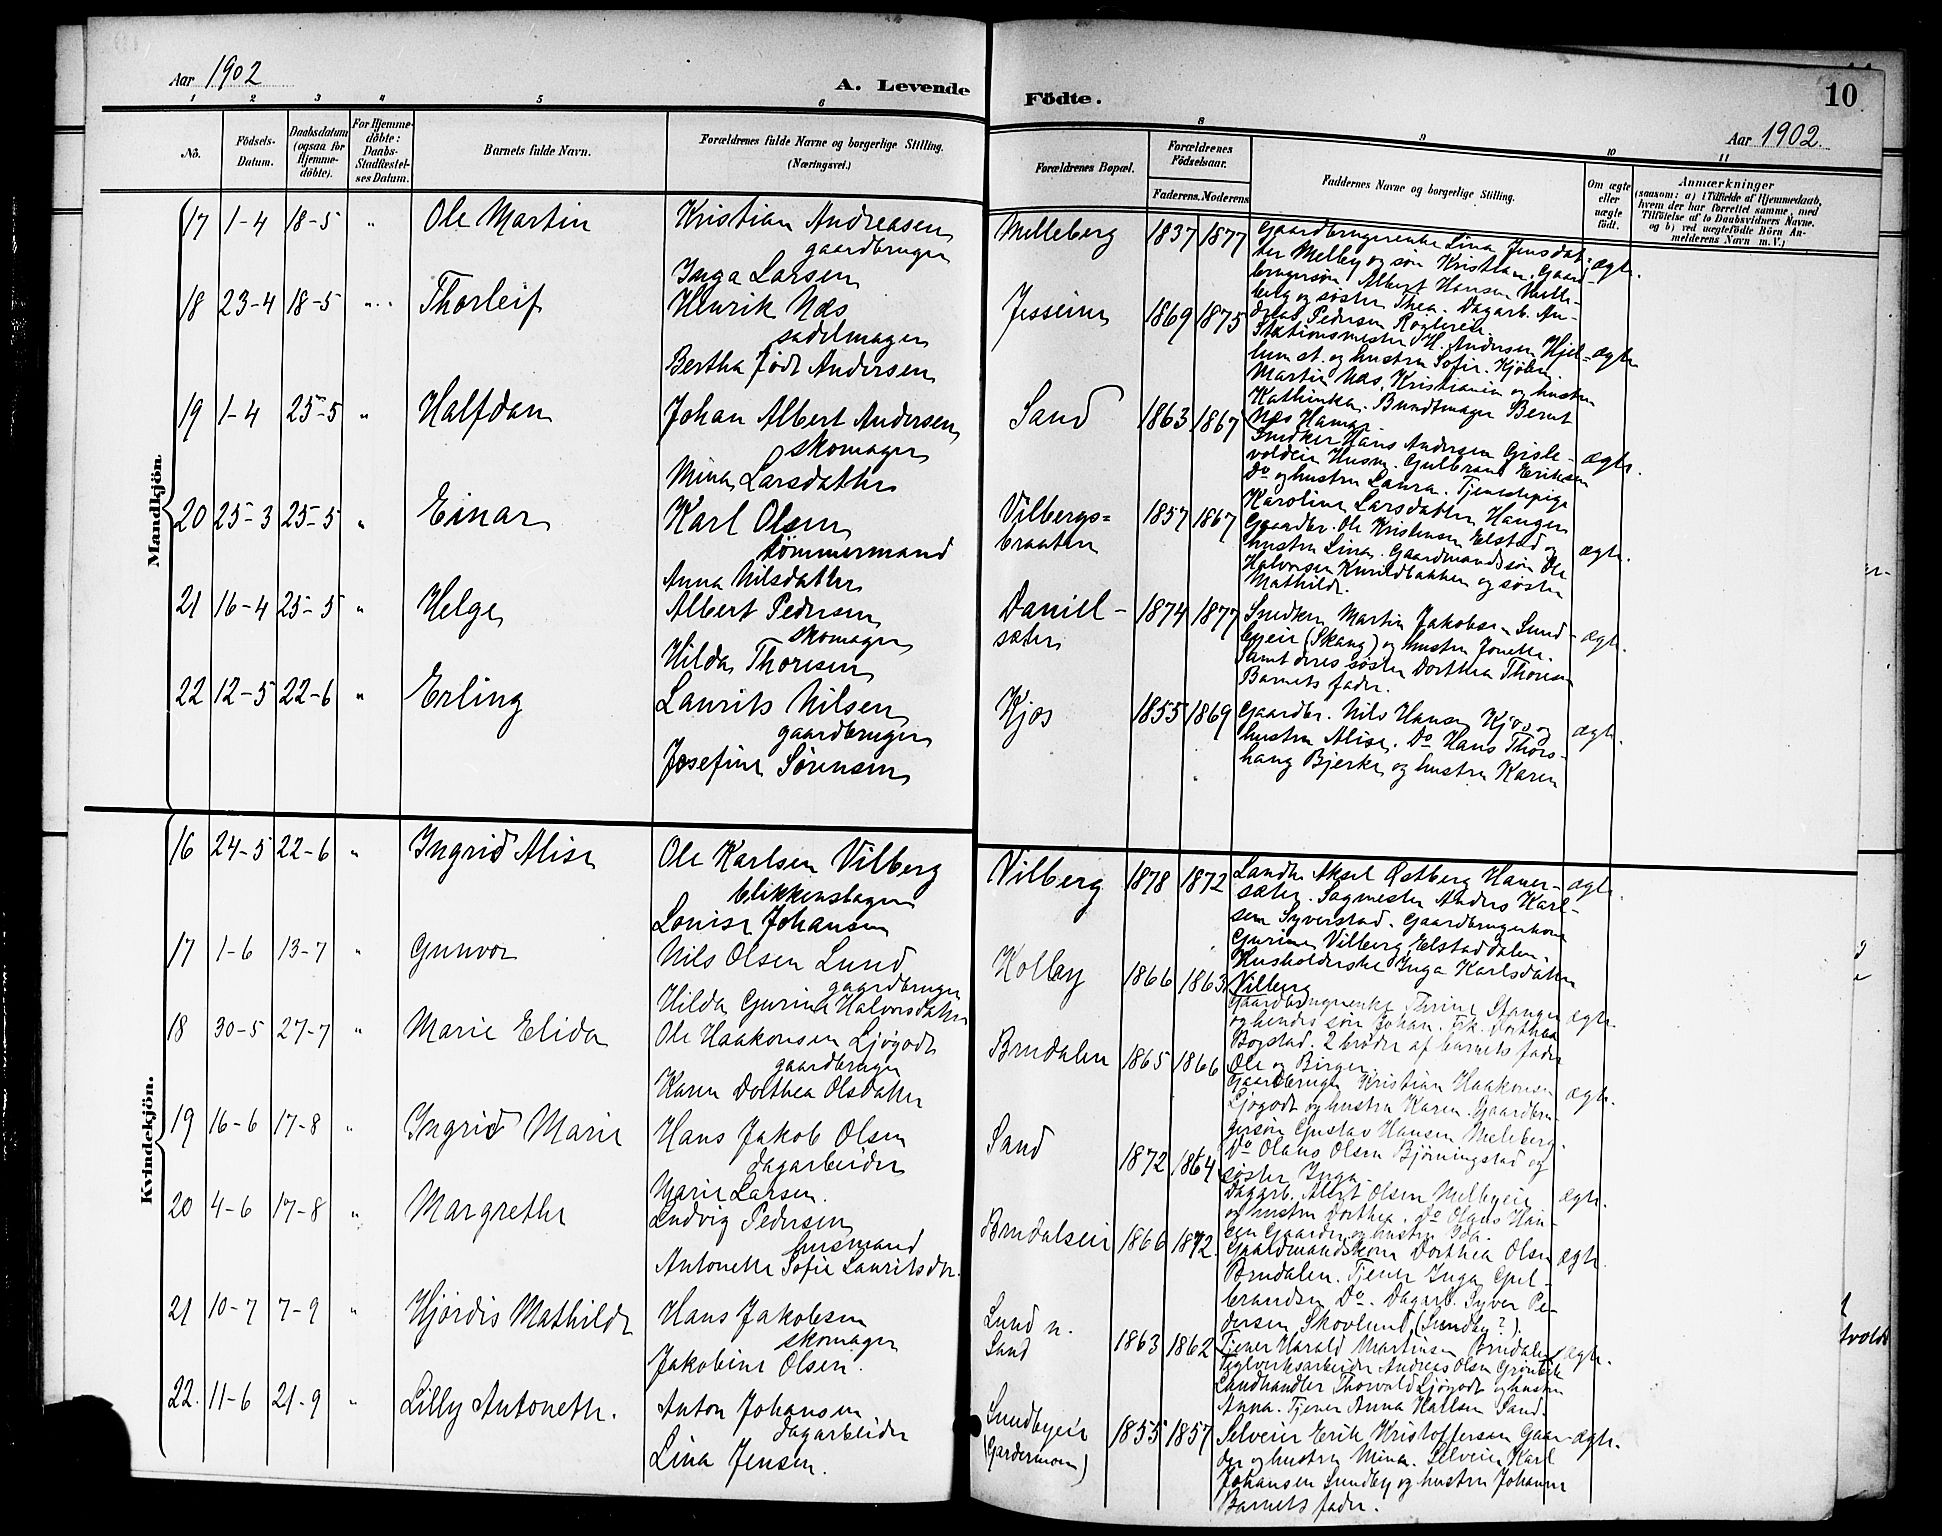 Aar 1902
A. Levende
Födte.
10
Aar 1902.
1 2 3 4 5 6 8 9 10 11
Nö.
Födsels-
Datum.
Daabsdatum
(ogsaa for
Hjemme-
döbte).
For Hjemme-
döbte:
Daabs-
Stadfæstel-
ses Datum.
Barnets fulde Navn.
Forældrenes fulde Navne og borgerlige Stilling.
(Næringsvei.)
Forældrenes Bopæl.
Forældrenes
Födselsaar.
Faderens. Moderens
Faddernes Navne og borgerlige Stilling.
Om ægte
eller
uægte
födt.
Anmærkninger
(saasom: a) i Tilfælde af Hjemmedaab,
hvem der har forrettet samme, med
Tilföielse af to Daabsvidners Navne.
og b) ved uægtefödte Börn An-
melderens Navn m. V.)
Mandkjön
17 1-4 18-5 " Ole Martin Kristian Andreasen
gaardbruger
Inga Larsen
Melleberg 1837 1877 Gaardbrugerenke Lina Jensdat-
ter Melby og søn Kristian. Gaard-
brugersøn Albert Hansen Melle-
berg og søster Thea. Dagarb. An-
dreas Pedersen
ægte.
18 23-4 18-5 " Thorleif Henrik Næs
sadelmager
Bertha født Andersen
Jessheim 1869 1875
Stationsmester H. Andersen Hjel-
lum st. og hustru Sofie. Kjøbm.
Martin Næs, Kristiania og hustru
Kathinka. Bundtmager Bernt
Næs Hamar.
ægte
19 1-4 25-5 " Halfdan Johan Albert Andersen
skomager
Mina Larsdatter
Sand 1863 1867
Snedker Hans Andersen Gisle-
voldeie Husm. Gulbrand Eriksen
Do og hustru Laura. Tjenestepige
Karoline Larsdatter Haugen
ægte.
20 25-3 25-5 " Einar Karl Olsen
tømmermand
Anna Nilsdatter
Vilbergs=
braaten 1857 1867
Gaardbr. Ole Kristensen Elstad og
hustru Lina. Gaardmandssøn Ole
Halvorsen Kverildbakken og søster
Mathilde.
ægte.
21 16-4 25-5 " Helge Albert Pedersen
skomager
Hilda Thoresen
Daniel-
sæter 1874 1877
Snedker Martin Jakobsen Sund-
byeie (Skaug) og hustru Jonette.
Samt deres søster Dorthea Thoresen
Barnets fader.
ægte.
22 12-5 22-6 " Erling Laurits Nilsen
gaardbruger
Josefine Sørensen
Kjos 1855 1869
Gaardbr. Nils Hansen Kjos og
hustru Alise. Do Hans Thors-
haug Bjerke og hustru Karen
ægte.
Kvindekjön.
16 24-5 22-6 " Ingrid Alise Ole Karlsen Vilberg
blikkenslager
Louise Johansen
Vilberg 1878 1872
Landh. Aksel Østberg Haner-
sæter. Sagmester Anders Karl-
sen Syverstad. Gaardbrugerkone
Gurine Vilberg Elstaddalen.
Husholderske Inga Karlsdatter
Vilberg
ægte.
17 1-6 13-7 " Gunvor Nils Olsen Lund
gaardbruger
Hilda Gurine Halvorsdatter
Kolby 1866 1863
Gaardbrugerenke Thrine Stanger
og hendes søn Johan. Frk. Dorthea
Bogstad. 2 brødre af barnets fader
Ole og Birger.
ægte.
18 30-5 27-7 " Marie Elida Ole Haakonsen Ljøgodt
gaardbruger
Karen Dorthea Olsdatter
Brudalen 1865 1866
Gaardbruger Kristian Haakonsen
Ljøgodt og hustru Karen. Gaardbru-
gersøn Gustav Hansen Meleberg.
Do Olaus Olsen Bjørningstad og
søster Inga.
ægte.
19 16-6 17-8 " Ingrid Marie Hans Jakob Olsen
dagarbeider
Marie Larsen.
Sand 1872 1864
Dagarb. Albert Olsen Melbyeie
og hustru Dorthea. Do Olaus Han-
sen Gaarder og hustru Ida.
ægte.
20 4-6 17-8 " Margrethe Ludvig Pedersen
husmand
Antonette Sofie Lauritsdtr.
Brudalseie 1866 1872.
Gaardmandskone Dorthea Olsen
Brudalen. Tjener Inga Gul-
brandsen Do. Dagarb. Syver Pe-
dersen Skovlund, (Sundby?).
Tjener Harald Martinsen Brudalen
ægte.
21 10-7 7-9 " Hjørdis Mathilde Hans Jakobsen
skomager
Jakobine Olsen.
Lund n.
Sand 1863 1862
Teglverksarbeider Andreas Olsen Grønbæk
Landhandler Thorvald Ljøgodt og hustru
Anna. Tjener Anna Hallsen Sand.
ægte.
22. 11-6 21-9 " Lilly Antonette. Anton Johansen
dagarbeider
Lina Jensen.
Sundbyeie
(Gardermoen) 1855 1857
Selveier Erik Kristoffersen Gaar-
der og hustru Mina. Selveier Karl
Johansen Sundby og hustru Johanne
Barnets fader.
ægte.